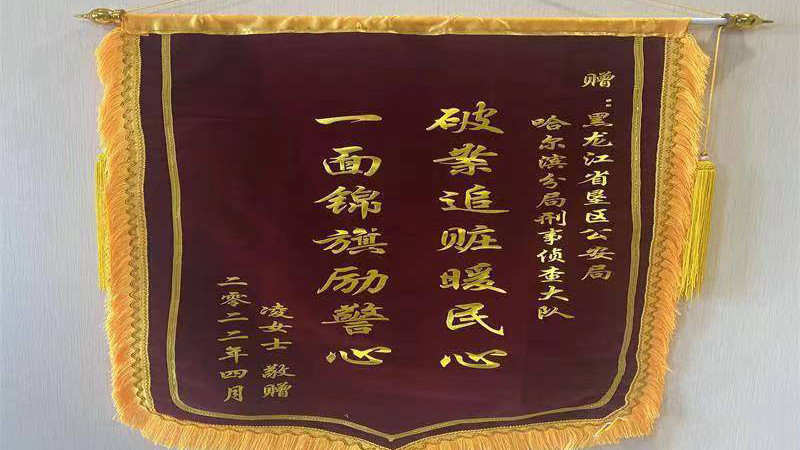 赠：黑龙江省垦区公安局
哈尔滨分局刑事侦查大队
破案追赃暖民心
一面锦旗励警心
凌女士 敬赠
二零二二年四月